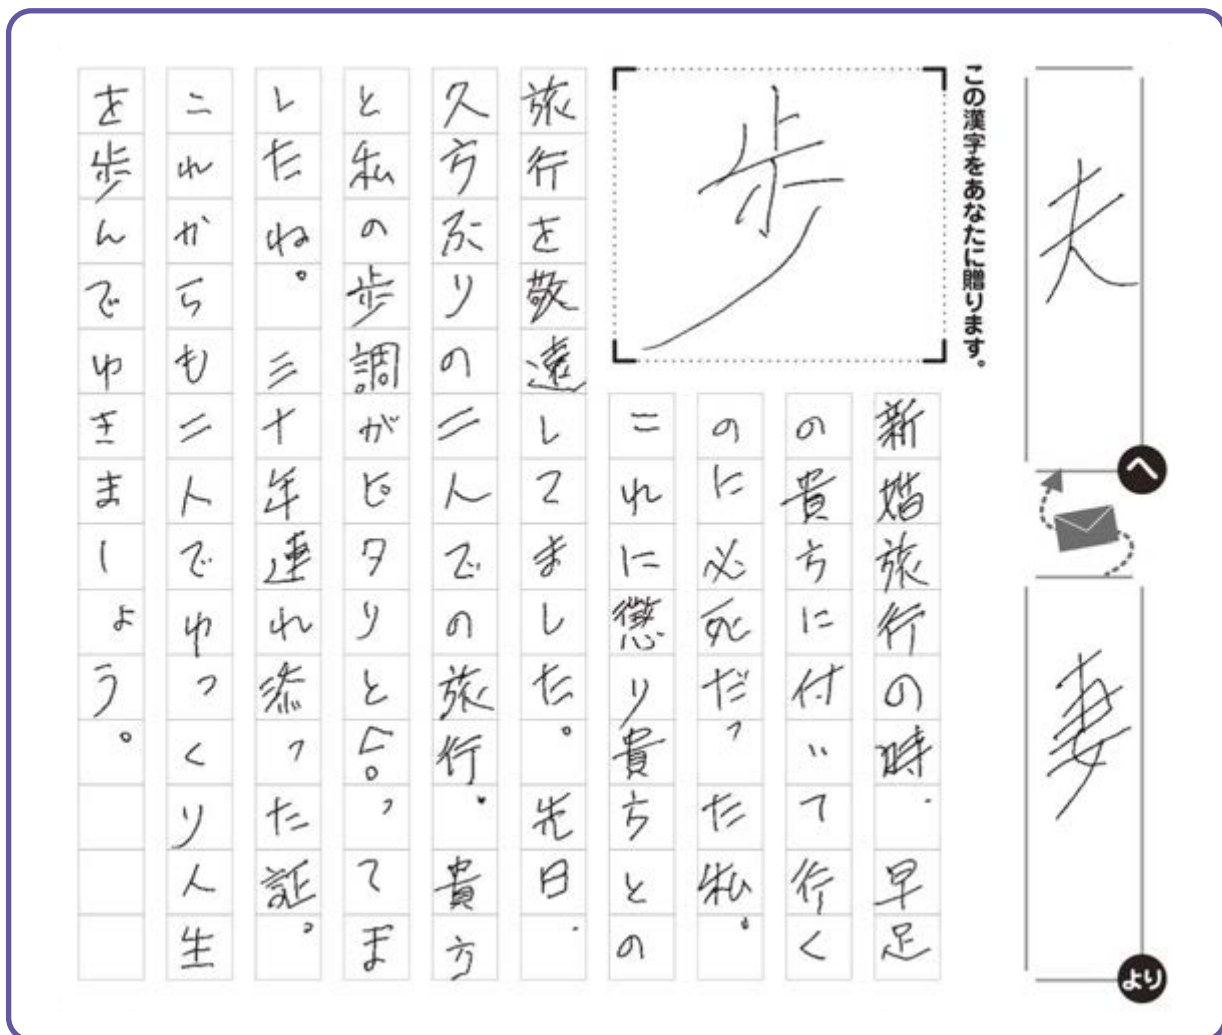 夫
へ
妻
より
この漢字をあなたに贈ります。
歩
新婚旅行の時、早足
の貴方に付いて行く
のに必死だった私。
これに懲り貴方との
旅行を敬遠してました。先日、
久方ぶりの二人での旅行。貴方
と私の歩調がピタリと合ってま
したね。三十年連れ添った証。
これからも二人でゆっくり人生
を歩んでゆきましょう。